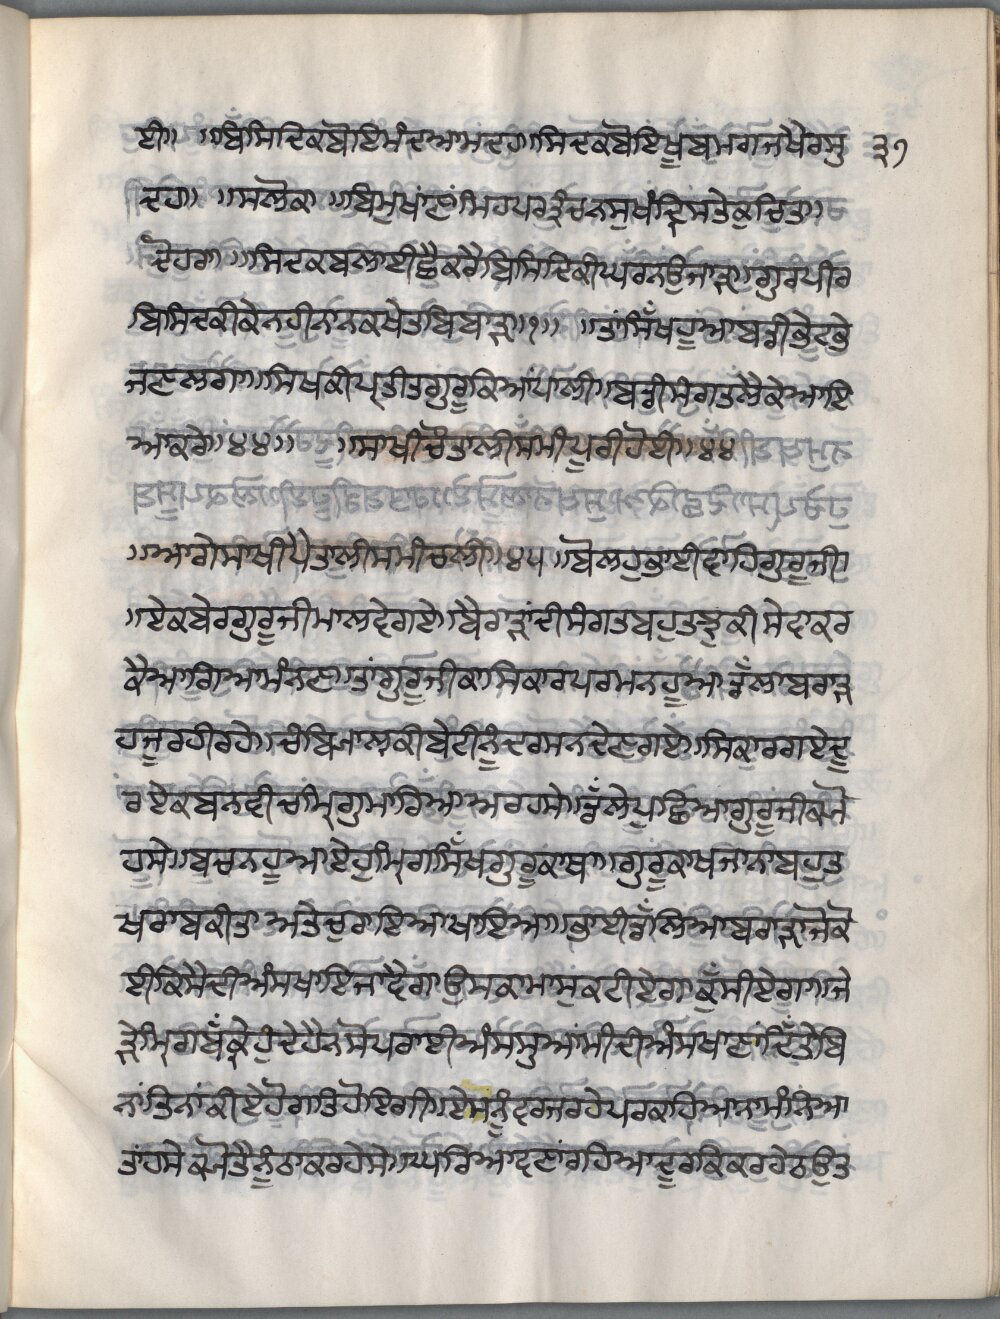 ਈ॥ ॥ਬਿਸਿਦਿਕਬੋਇਮੰਦਆਮਦਹ॥ਸਿਦਕਬੋਇਖੁਬਮਗਜਖੈਰਸੁ ੩੭
ਦਹ॥ ॥ਸਲੋਕਾ ॥ਬਿਮੁਖਾਂਣਾਂਮਿਹਪਰਤੁੰਚਨਸੁਖੰਦ੍ਰਿਸਤੇਕੁਚਿਤ॥
ਦੋਹਰਾ॥ ॥ਸਿਦਕਬਲਾਈਛੈਕਰੈਬਿਸਿਦਿਕੀਘਰਨਉਜਾੜਾ॥ਗੁਰਪੀਰ
ਬਿਸਿਦਕੀਕੇਨਹੀਨਾਨਕਖੇਤਬਿਬਾੜਾ॥੧॥ ॥ਤਾਂਸਿੱਖਹੂਆਬਡੀਭੇਟਤੇ
ਜਣਲਗਾ॥ਸਿਖਕੀਪ੍ਰਤੀਤਗੁਰੂਕਿਆਂਪਾਲੀ॥ਬਡੀਸੰਗਤਲੈਕੇਆਇ
ਆਕਰੇ॥੪੪॥ ॥ਸਾਖੀਚੌਤਾਲੀਸਮੀਪੂਰੀਹੋਈ॥੪੪
॥ਆਗੇਸਾਖੀਪੈਤਾਲੀਸਮੀਚਲੀ॥੪੫॥ਬੋਲਹੁਭਾਈਵਾਹਿਗੁਰੂਜੀ॥
॥ਏਕਬੇਰਗੁਰੂਜੀਮਾਲਵੇਗਏ॥ਬੈਰਾੜਾਂਦੀਸੰਗਤਬਹੁਤਝੁਕੀਸੇਵਾਕਰ
ਕੈਆਗਿਆਮੰਨਣ॥ਤਾਂਗੁਰੂਜੀਕਾਸਿਕਾਰਪਰਮਨਹੂਆਡੱਲਾਬਰਾੜ
ਹਜੂਰਹੀਰਹੇ॥ਚੰਬਿਆਲਕੀਬੇਟੀਨੂੰਦਰਸਨਦੇਣਗਏ॥ਸਿਕਾਰਗਏਦੂ
ਰਏਕਬਨਵੀਚਾਂਮ੍ਰਿਗੁਮਾਰਿਆਅਰਹਸੇ॥ਡੱਲੇਪੁਛਿਆਗੁਰੂਜੀਕਜੋ
ਹਸੇ॥ਬਚਨਹੂਆਏਹੁਮ੍ਰਿਗਸਿੱਖਗੁਰੂਕਾਥਾ॥ਗੁਰੂਕਾਖਜਾਨਾਬਹੁਤ
ਖਰਾਬਕੀਤਾਅਤੇਚੁਰਾਇਆਖਾਇਆ॥ਭਾਈਡੱਲਿਆਬਰਾੜਾਜੋਕੋ
ਈਕਿਸੈਦੀਅੰਸਖਾਇਜਾਵੈਗਾਉਸਕਾਮਾਸੁਕਟੀਏਗਾਕੁੱਸੀਏਗਾ॥ਜੇ
ੜੇਮ੍ਰਿਗਬੱਕ੍ਰੇਹੁੰਦੇਹੈਨਸੋਪਰਾਈਅੰਸਸੁਆਂਮੀਦੀਅੰਸਖਾਣਾਂਦਿੱਤੇਬਿ
ਨਾਂਤਿਨਾਂਕੀਏਹੋਗਤਿਹੋਇਗੀ॥ਏਸਨੂੰਵਰਜਰਹੇਪਰਕਹਿਆਨਾਮੰਨਿਆ
ਤਾਂਹਸੇਕਜੋਤੈਨੂੰਠਾਕਰਹੇਸੇ॥ਧਰਿਆਦੇਣਾਂਰਹਿਆਦੂਰਕਿਕਰਹੇਠਉਤ